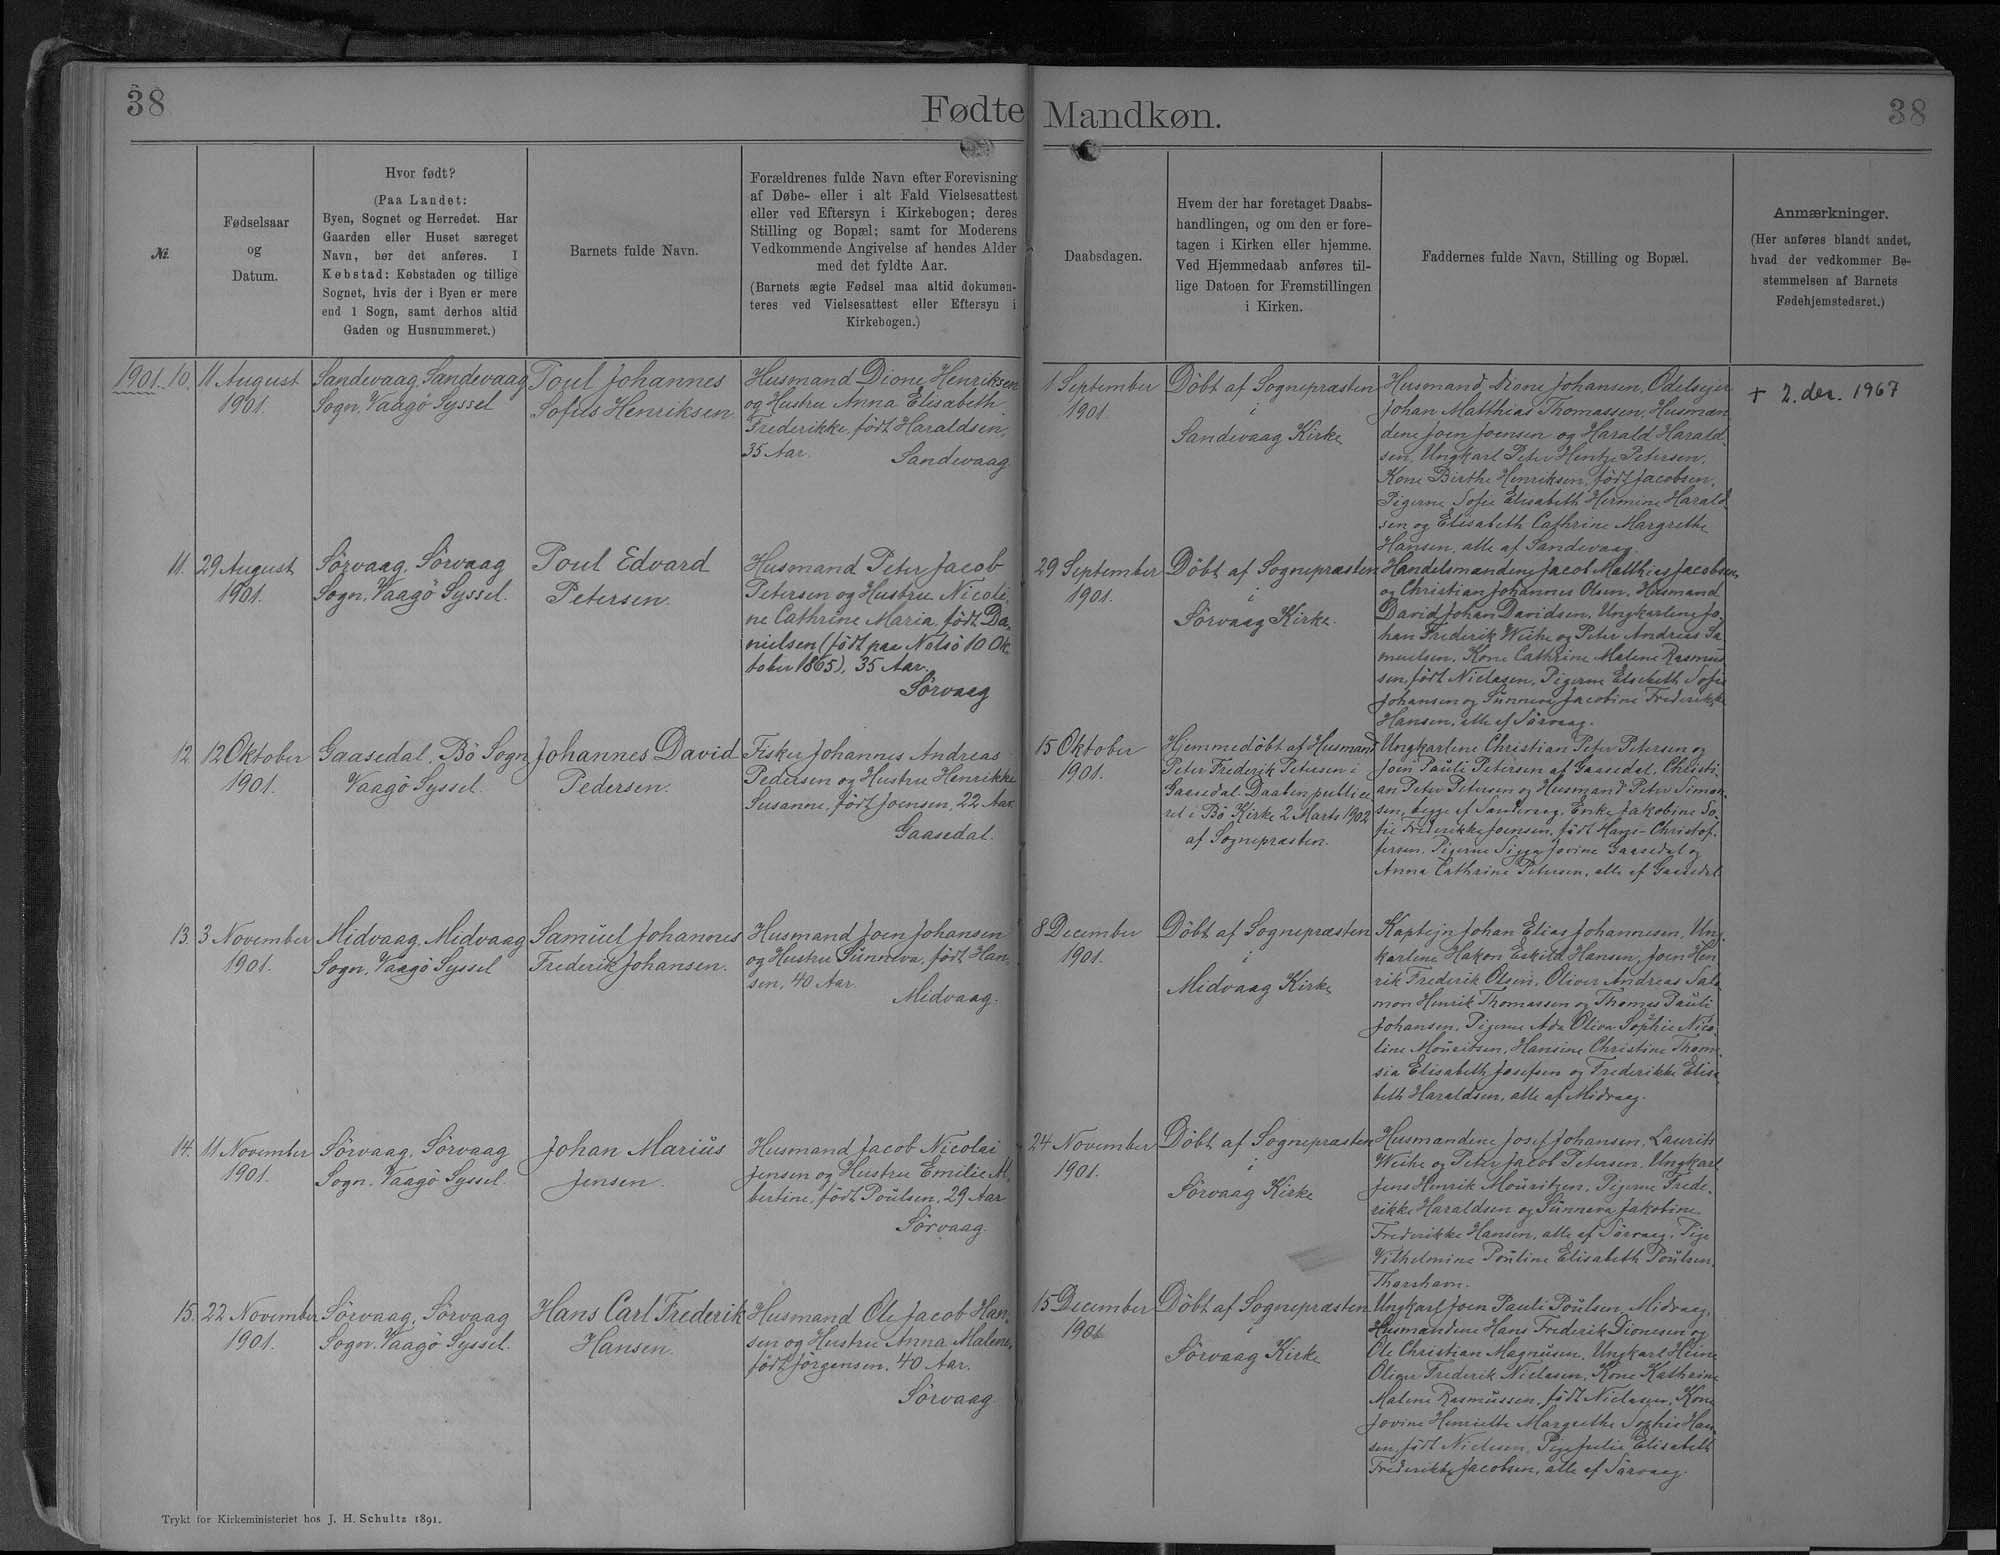 38
Fødte Mandkøn.
38
№
Fødselsaar
og
Datum.
Hvor født?
(Paa Landet:
Byen, Sognet og Herredet. Har
Gaarden eller Huset særeget
Navn, bør det anføres. I
Købstad: Købstaden og tillige
Sognet, hvis der i Byen er mere
end 1 Sogn, samt derhos altid
Gaden og Husnummeret.)
Barnets fulde Navn.
Forældrenes fulde Navn efter Forevisning
af Døbe- eller i alt Fald Vielsesattest
eller ved Eftersyn i Kirkebogen; deres
Stilling og Bopæl; samt for Moderens
Vedkommende Angivelse af hendes Alder
med det fyldte Aar.
(Barnets ægte Fødsel maa altid dokumen-
teres ved Vielsesattest eller Eftersyn i
Kirkebogen.)
Daabsdagen.
Hvem der har foretaget Daabs-
handlingen, og om den er fore-
tagen i Kirken eller hjemme.
Ved Hjemmedaab anføres til-
lige Datoen for Fremstillingen
i Kirken.
Faddernes fulde Navn, Stilling og Bopæl.
Anmærkninger.
(Her anføres blandt andet,
hvad der vedkommer Be-
stemmelsen af Barnets
Fødehjemstedsret.)
1901. 10.
11 August
1901.
Sandevaag, Sandevaag
Sogn, Vaagö Syssel
Poul Johannes
Sofus Henriksen.
Husmand Dione Henriksen
og Hustru Anna Elisabeth
Frederikke, född Haraldsen,
35 Aar.
Sandevaag
1 September
1901.
Döbt af Sognepræsten
i
Sandevaag Kirke
Husmand Dione Johansen, Odelsejer
Johan Matthias Thomassen, Husmæn
dene Joen Joensen og Harald Harald-
sen, Ungkarl Peter Hentze Petersen,
Kone Birthe Henriksen, födt Jacobsen,
Pigerne Sofie Elisabeth Hermine Harald
sen og Elisabeth Cathrine Margrethe
Hansen, alle af Sandevaag.
+ 2. des. 1967
11.
29 August
1901.
Sörvaag, Sörvaag
Sogn, Vaagö Syssel.
Poul Edvard
Petersen.
Husmand Peter Jacob
Petersen og Hustru Nicoli-
ne Cathrine Maria, födt Da-
nielsen (födt paa Nolsö 10 Ok-
tober 1865), 35 Aar.
Sörvaag
29 September
1901.
Döbt af Sognepræsten
i
Sörvaag Kirke.
Handelsmændene Jacob Matthias Jacobsen
og Christian Johannes Olsen, Husmand
David Johan Davidsen, Ungkarlene Jo-
han Frederik Weihe og Peter Andreas Sa-
muelsen, Kone Cathrine Malene Rasmus-
sen, födt Nielasen, Pigerne Elsebeth Sofie
Johansen og Sunneva Jacobine Frederikke
Hansen, alle af Sörvaag.
12.
12 Oktober
1901.
Gaasedal, Bö Sogn
Vaagö Syssel.
Johannes David
Pedersen.
Fisker Johannes Andreas
Pedersen og Hustru Henrikke
Susanne, födt Joensen, 22 Aar
Gaasedal.
15 Oktober
1901.
Hjemmedöbt af Husmand
Peter Frederik Petersen i
Gaasedal. Daaben publice
ret i Bö Kirke 2 Marts 1902
af Sognepræsten.
Ungkarlene Christian Peter Petersen og
Joen Pauli Petersen af Gaasedal, Christi-
an Peter Petersen og Husmand Peter Simon-
sen, begge af Sandevaag, Enke Jakobine So-
fie Frederikke Joensen, födt Hans-Christof-
fersen, Pigerne Sigga Jovine Gaasedal og
Anna Cathrine Petersen, alle af Gaasedal
13.
3 November
1901.
Midvaag, Midvaag
Sogn, Vaagö Syssel
Samuel Johannes
Frederik Johansen.
Husmand Joen Johansen
og Hustru Sunneva, födt Han-
sen, 40 Aar.
Midvaag.
8 December
1901.
Döbt af Sognepræsten
i
Midvaag Kirke
Kaptejn Johan Elias Johannesen, Ung-
karlene Hakon Eskild Hansen, Joen Hen
rik Frederik Olsen, Oliver Andreas Salo
mon Henrik Thomassen og Thomas Pauli
Johansen, Pigerne Ada Oliva Sophie Nico-
line Mouritsen, Hansine Christine Thom-
sia Elisabeth Josefsen og Frederikke Elisa-
beth Haraldsen, alle af Midvaag.
14.
11 November
1901.
Sörvaag, Sörvaag
Sogn, Vaagö Syssel.
Johan Marius
Jensen.
Husmand Jacob Nicolai
Jensen og Hustru Emilie Al-
bertine, födt Poulsen, 29 Aar
Sörvaag.
24 November
1901.
Döbt af Sognepræsten
i
Sörvaag Kirke
Husmændene Josef Johansen, Laurits
Weihe og Peter Jacob Petersen, Ungkarl
Jens Henrik Mouritzen, Pigerne Frede-
rikke Haraldsen og Sunneva Jakobine
Frederikke Hansen, alle af Sörvaag, Pige
Vilhelmine Pouline Elisabeth Poulsen,
Thorshavn.
15.
22 November
1901.
Sörvaag, Sörvaag
Sogn, Vaagö Syssel.
Hans Carl Frederik
Hansen.
Husmand Ole Jacob Han-
sen og Hustru Anna Malene,
födt Jörgensen, 40 Aar.
Sörvaag
15 December
1901
Döbt af Sognepræsten
i
Sörvaag Kirke
Ungkarl Joen Pauli Poulsen, Midvaag,
Husmændene Hans Frederik Dionesen og
Ole Christian Magnusen, Ungkarl Heine
Oliger Frederik Nielasen, Kone Kathrine
Malene Rasmussen, födt Nielasen, Kone
Jovine Henriette Margrethe Sophie Han-
sen, födt Nielsen, Pige Julie Elisabeth
Frederikke Jacobsen, alle af Sörvaag.
Trykt for Kirkeministeriet hos J. H. Schultz 1891.